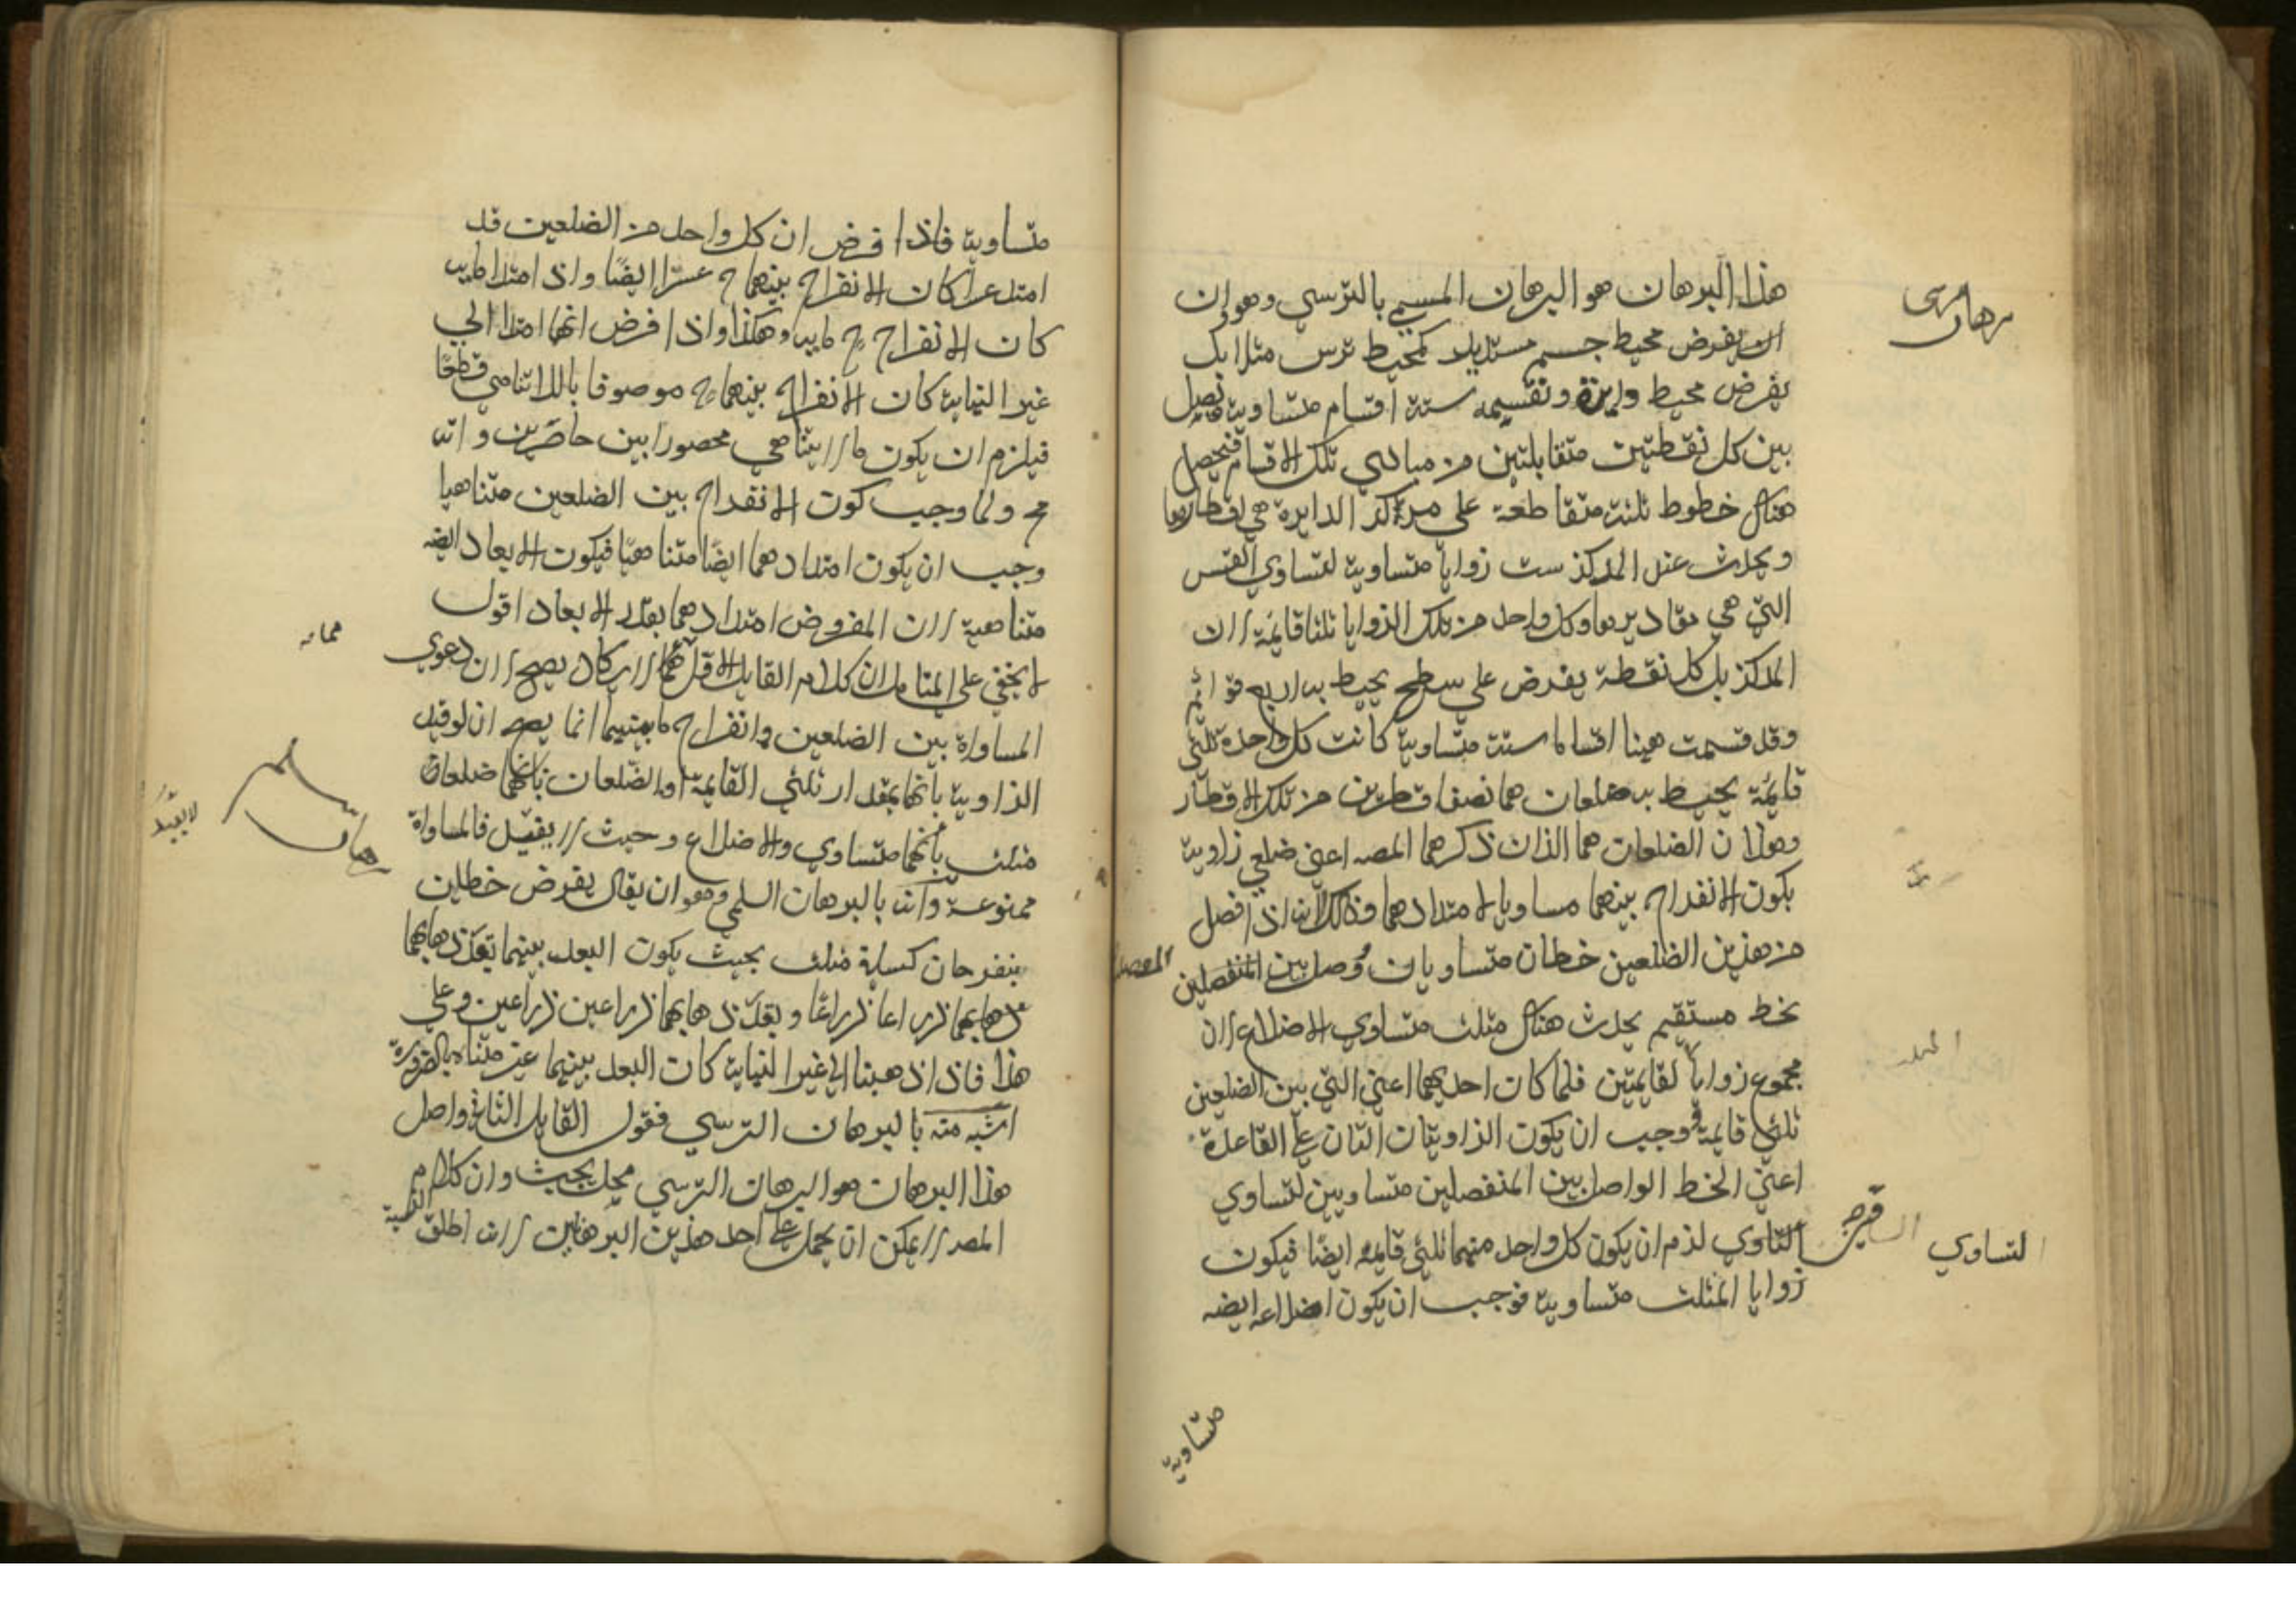 هذا البرهان هو البرهان المسمى بالترسي وهو ان
ان يفرض محيط جسم مستدير كمحيط ترس مثلا بل
يفرض محيط دايرة ونقسيمه ستة اقسام متساوية فيصل
بين كل نقطتين متقابلتين من مبادي تلك الاقسام فيحصل
هناك خطوط ثلثة متقاطعة على مركز الدايرة هي اقطارها
ويحدث عند المركز ست زوايا متساوية لتساوي القسي
التي هي مقاديرها وكل واحد من تلك الزوايا ثلثا قايمة لان
المركز بل كل نقطة يفرض على سطح يحيط به اربع قوايم
وقد قسمت هينا اقساما ستة متساوية كانت كل واحدة ثلثي
قايمة يحيط به ضلعان هما نصفا قطرين من تلك الاقطار
وهذان الضلعان هما الذان ذكرهما المصه اعني ضلعي زاوية
يكون الانفراج بينهما مساويا لامتدادهما وذلك لانه اذا فصل
من هذين الضلعين خطان متساويان وصل بين المنفصلين
بخط مستقيم يحدث هناك مثلث متساوي الاضلاع لان
مجموع زوايا لقايمتين فلما كان احديهما اعني التي بين الضلعين
ثلثي قايمة وجب ان يكون الزاويتان التان على القاعدة
اعني الخط الواصل بين المنفصلين متساويين لتساوي
لزم ان يكون كل واحد منهما ثلثي قايمه ايضا فيكون
زوايا المثلث متساوية فوجب ان يكون اضلاعه ايضه
متساوية
برهان ترسى
التساوي
متساوية فاذا فرض ان كل واحد من الضلعين قد
امتد عشرا كان الانفراج بينهما ح عشرا ايضا واذ امتدا مايه
كان الانفراج ح مايه وهكذا واذا فرض انهما امتدا الي
غير النهاية كان الانفراج بينهما ح موصوفا باللاتناهي قطعا
فيلزم ان يكون ما لا يتناهي محصورا بين حاصرين وانه
مح ولما وجب كون الانفراج بين الضلعين متناهيا
وجب ان يكون امتدادهما ايضا متناهيا فيكون الابعاد ايضه
متناهية لان المفروض امتدادهما بقدر الابعاد اقول
لا يخفي على المتامل ان كلام القايل الاقل لا يكاد يصح لان دعوي
المساواة بين الضلعين وانفراج ما بينهما انما يصح ان لو قيد
الزاوية بانها بمقدار ثلثي القايمة او الضلعان بانهما ضلعان
مثلث بانهما متساوي والاضلاع وحيث لا يقيد فالمساواة
ممنوعة وانه بالبرهان السلمي وهو ان يقال يفرض خطين
ينفرجان كساقي مثلث بحيث يكون البعد بينهما بعد ذهابهما
ذهابهما ذراعا ذراعا وبعد ذهابهما ذراعين ذراعين وعلي
هذا فاذا ذهبنا الي غير النهاية كان البعد بينهما غير متناه بالضرورة
اشبه منه بالبرهان الترسي فقول القايل الثاني واصل
هذا البرهان هو البرهان الترسي محل بحيث وان كلام
المصر لا يمكن ان يحمل على احد هذين البرهانين لانه اطلق
برهان سلم